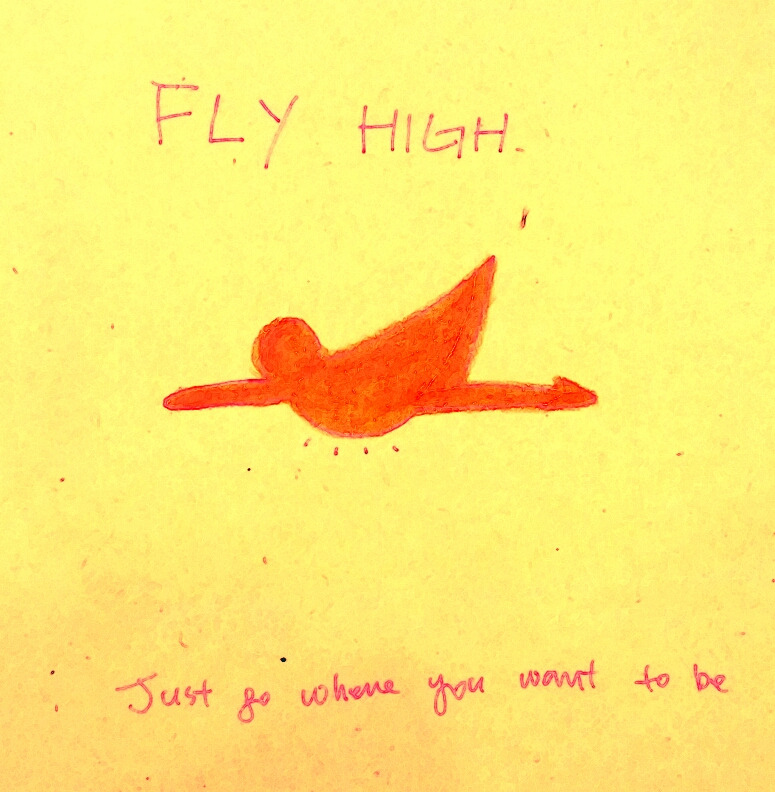 FLY HIGH.
Just go where you want to be